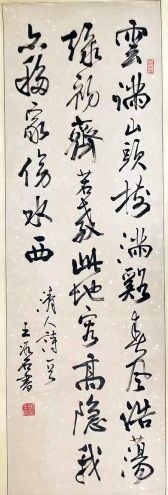 雲滿山頭樹滿谿春風浩蕩
綠初齊若教此地容高隱我
亦移家傍水西
清人詩一首
王冰石書